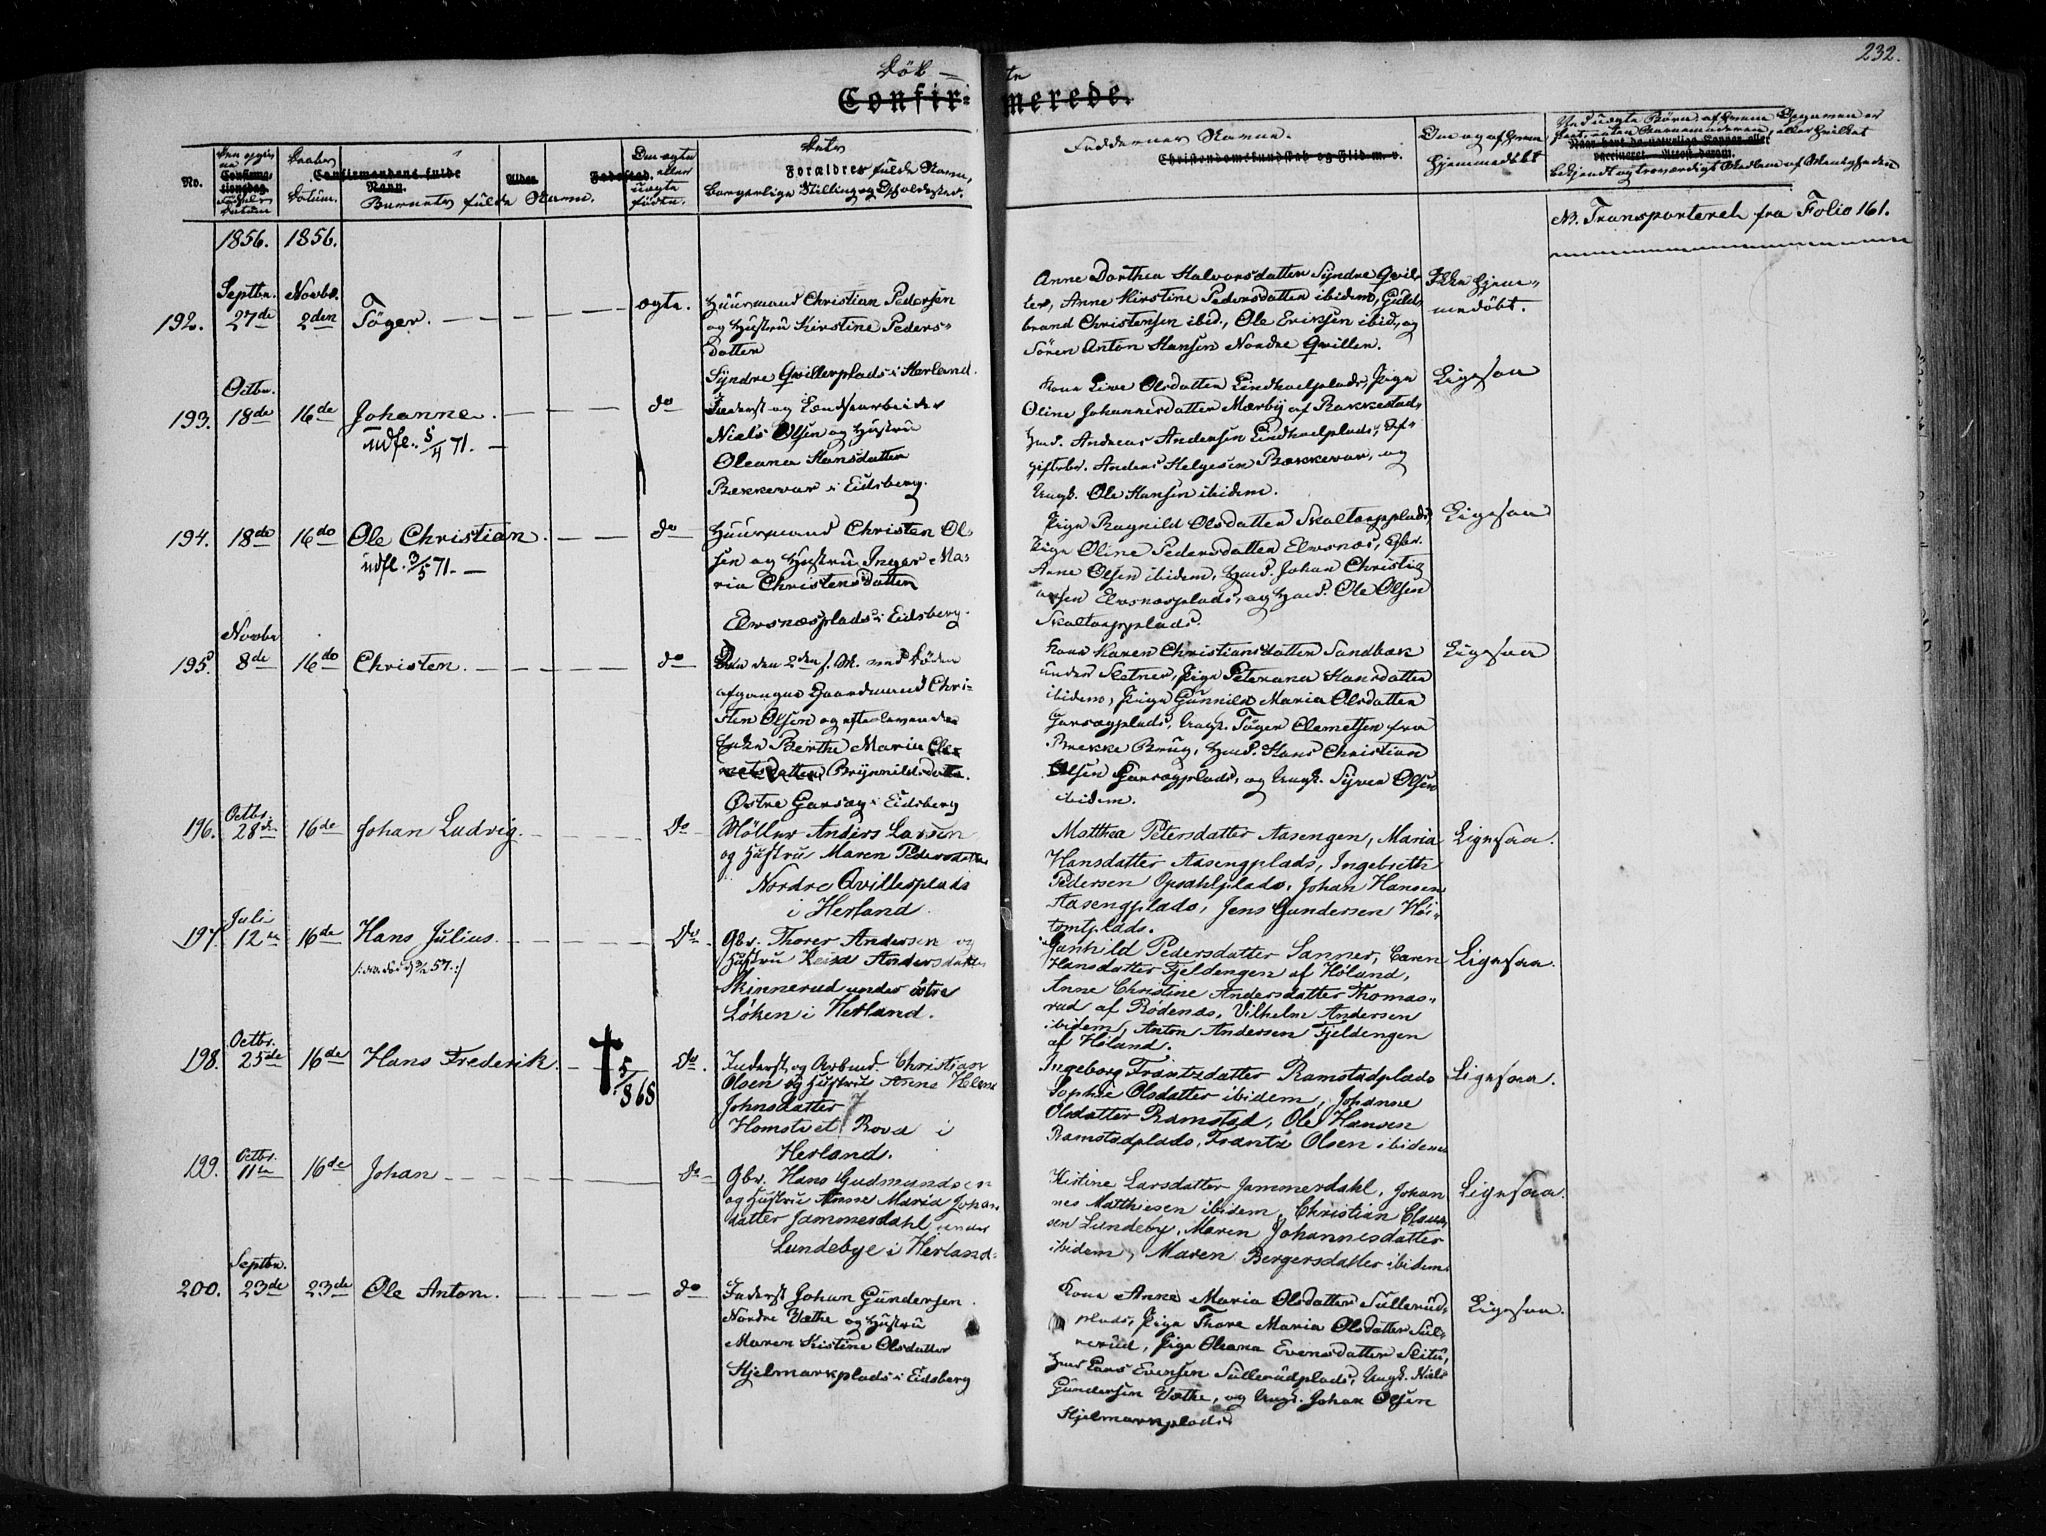 232.
Døb- te
Confir- merede.
No.
Confirmationsdag.
Fødsels
Datum
Daabs
Datum.
Confirmandens fulde Navn.
Barnets fulde Navn.
Alder.
Fødested.
Om ægte
eller
uægte
føden.
Dets
Forældres fulde Navn,
borgerlige Stilling og Opholdssted.
Faddernes Navne.
Christendomskundskab og Flid m. v.
Om og af hvem
hjemmedøbt
Naar, hvor og af hvem
vaccineret. Attest derom.
NB. Transporteret fra Folio 161.
1856. 1856.
Septbr. Novbr.
192. 27de 2den Töger. ægte.
Huusmand Christian Pedersen
og Hustru Kirstine Peders-
datter
Syndre Qvillerplads i Herland.
Anne Dorthea Halvorsdatter Syndre Qvil-
ler, Anne Kirstine Pedersdatter ibidem, Guld-
brand Christensen ibid., Ole Eriksen ibid., og
Sören Anton Hansen Nordre Qviller.
Ikke hjem-
medöbt.
Octbr.
193. 18de 16de Johanne.
udfl. 5/4 71.
do
Inderst og Jordarbeider
Niels Olsen og Hustru
Oleana Hansdatter
Bækkevar i Eidsberg.
Kone Live Olsdatter Lindhoelplads, Pige
Oline Johannesdatter Mærby af Rakkestad,
Hmd. Andreas Andersen Lindhoelplads,
Anders Helgesen Bækkevar, og
Ungk. Ole Hansen ibidem.
Ligesaa
194. 18de 16de Ole Christian.
udfl. 3/5 71.
do
Huusmand Christen Ol-
sen og Hustru Inger Ma-
ria Christensdatter
Elvsnæsplads i Eidsberg.
Pige Ragnild Olsdatter Skaltorpplads,
Pige Oline Pedersdatter Elvsnæs, Gbr.
Arne Olsen ibidem, Hmd. Johan Christi-
ansen Elvsnæsplads, og Hmd. Ole Olsen
Skaltorpplads.
Ligesaa
Novbr
195. 8de 16de Christen.
do
Den den 2den f. M. ved Döden
afgangne Gaardmand Chri-
sten Olsen og efterlevende
Enke Berthe Maria Cle-
metsdatter, Brynnildsdatter.
Østre Garsæg i Eidsberg
Kone Karen Christiansdatter Sandbæk
under Sletner, Pige Peterana Hansdatter
ibidem, Pige Gunnild Maria Olsdatter
Garsægplads, Ungk. Töger Clemetsen fra
Brekke Brug, Hmd. Hans Christian
Olsen Garsægplads, og Ungk. Syver Olsen
ibidem.
Ligesaa
Octbr.
196. 28de 16de Johan Ludvig.
Do
Møller Anders Larsen
og Hustru Maren Pedersdatter
Nordre Qvillesplads
i Herland.
Matthea Petersdatter Aasengen, Maria
Hansdatter Aasengplads, Ingebreth
Pedersen Opsahlplads, Johan Hansen
Aasengplads, Jens Gundersen Høi-
tomtplads.
Ligesaa.
Juli
197. 12te 16de Hans Julius.
57.:/
Do.
Gbr. Thorer Andersen og
Hustru Andersdatter
Skinnerud under östre
Löken i Herland.
Gunhild Pedersdatter Sanner, Caren
Hansdatter Fjeldengen af Høland,
Anne Christine Andersdatter Thomas-
rud af Rødenæs, Vilhelm Andersen
ibidem, Anton Andersen Fjeldengen
af Høland.
Ligesaa.
Octbr.
198. 25de 16de Hans Frederik. † 5/8 68
Do.
Inderst og Arbmd. Christian
Olsen og Hustru Anne Helene
Johnsdatter
Homstvet Rova i
Herland.
Ingeborg Frantzdatter Ramstadplads
Sophie Olsdatter ibidem, Johanne
Olsdatter Ramstad, Ole Hansen
Ramstadplads, Frantz Olsen ibidem
Ligesaa.
Octbr.
199. 11te 16de Johan
Do
Gbr. Hans Gudmundsen
og Hustru Anne Maria Johan-
datter Jammerdahl under
Lundebye i Herland.
Kistine Larsdatter Jammerdahl, Johan-
nes Matthiesen ibidem, Christian Claus-
sen Lundeby, Maren Johannesdatter
ibidem, Maren Bergersdatter ibidem.
Ligesaa.
Septbr.
200. 23de 23de Ole Anton.
do
Inderst Johan Gundersen
Nordre Væthe og Hustru
Maren Kistine Olsdatter
Hjelmarkplads i Eidsberg
Kone Anne Maria Olsdatter Sullerud-
plads, Pige Thore Maria Olsdatter Sul-
lerud, Pige Oleana Evensdatter Slitu,
Hmd. Lars Evensen Sullerudplads, Ungk. Niels
Gundersen Væthe, og Ungk. Johan Olsen
Hjelmarkplads
Ligesaa.